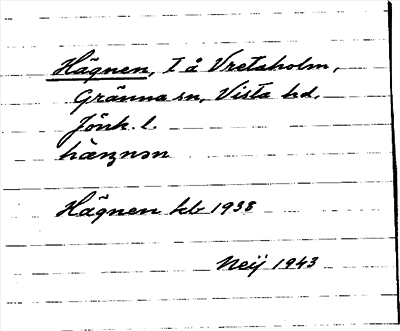 Hägnen, T å Vretaholm,
Gränna sn, Vista hd,
Jönk. l.
hàŋnən
Hägnen kb 1938
Neij 1943